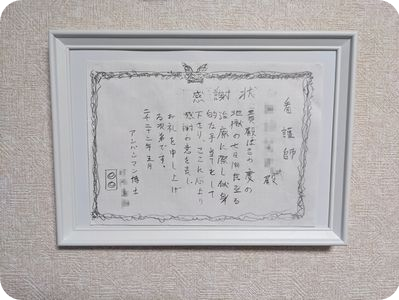 感謝状
看護師
殿
貴殿はこの度の
地獄の七日間に亘る
治療に際し献身
的な手当てをして
下さり、ここに心より
感謝の意を表し、
お礼を申し上げ
る次第です。
年五月
アンパンマン博士